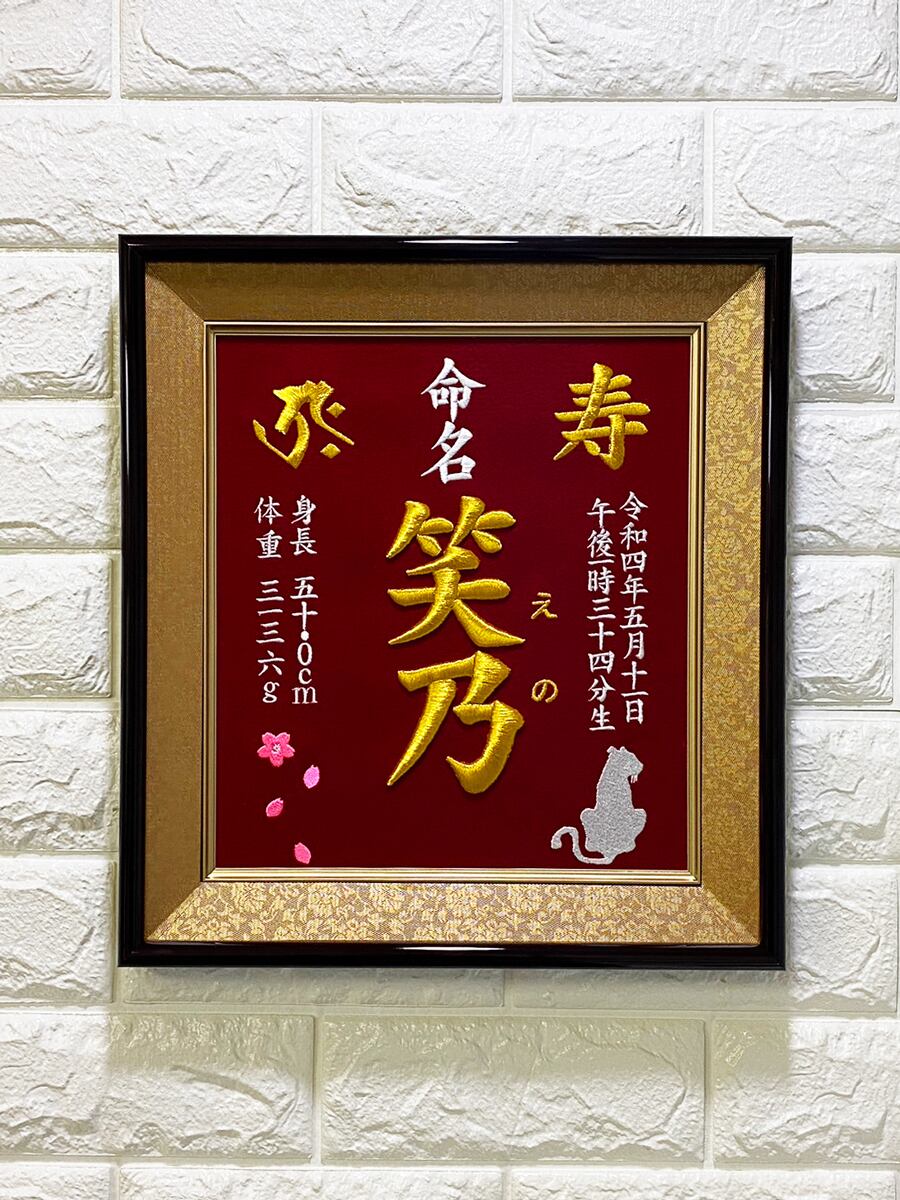 寿
令和四年五月十一日
午後一時三十四分生
命名
笑乃
えの
身長 五十•0cm
体重 三一三六g